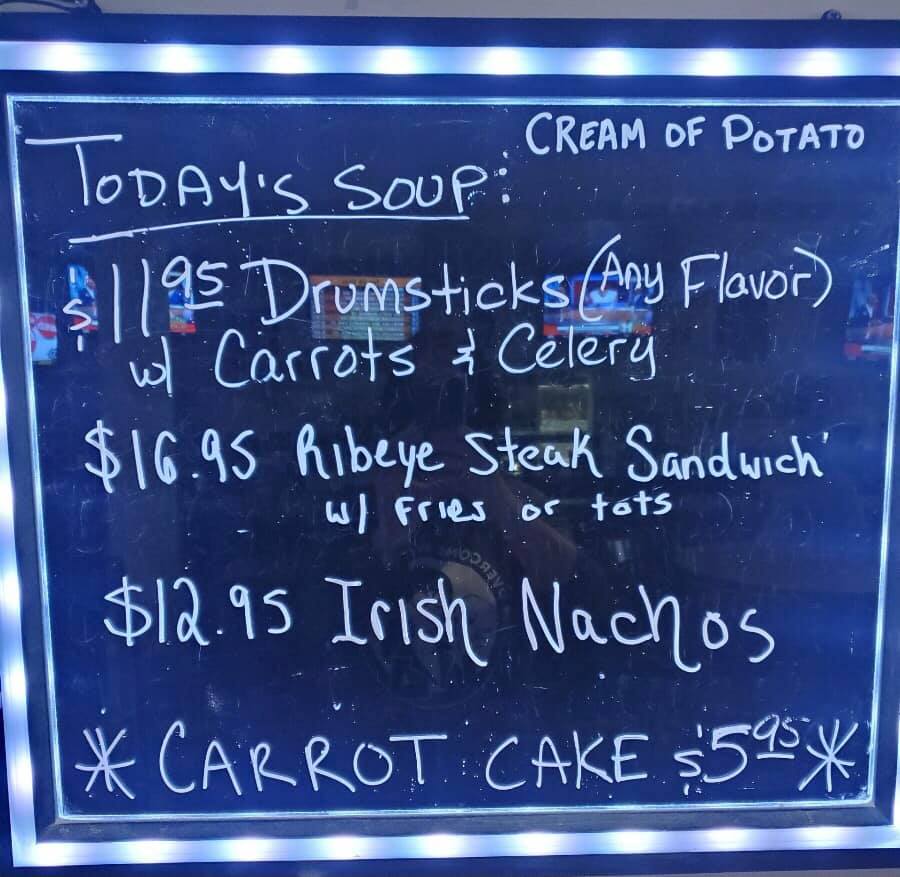 CREAM OF POTATO
TODAY'S SOUP:
$11.95 Drumsticks (Any Flavor)
w/ Carrots & Celery
$16.95 Ribeye Steak Sandwich
w/ Fries or tots
$12.95 Irish Nachos
* CARROT CAKE $5.95 *